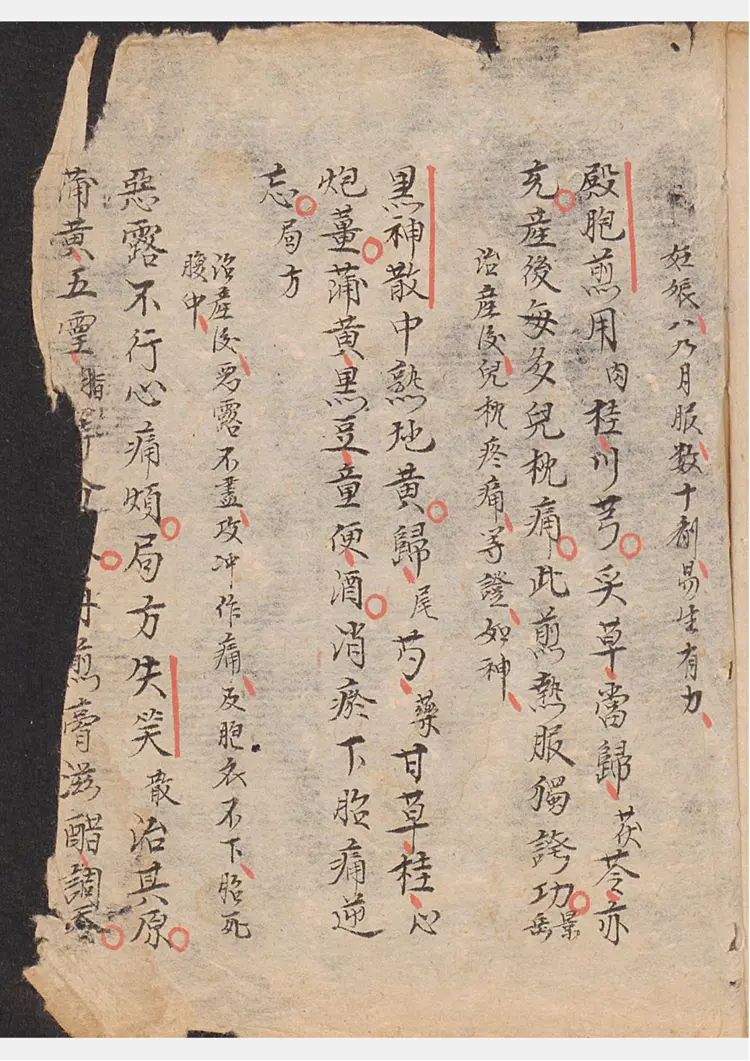 妊娠八九月服数十剤易生有力
殿胞煎用肉桂川芎炙草當歸茯苓亦
充產後每多兒枕痛此煎熱服獨誇功景岳
治產後兒枕疼痛等證如神
黒神散中熟地黄歸尾芍藥甘草桂心
炮薑蒲黄黒豆童便酒消瘀下胎痛逆
忘局方
治產後惡露不盡攻冲作痛及胞衣不下胎死
腹中
惡露不行心痛煩局方失笑散治其原
蒲黄五靈脂 煎膏滋醋調